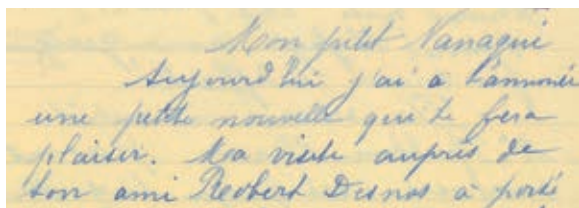 Mon petit Nanaqui
Aujourd'hui j'ai a t'annoncer
une petite nouvelle qui te fera
plaisir. Ma visite auprès de
ton ami Robert Desnos a porté